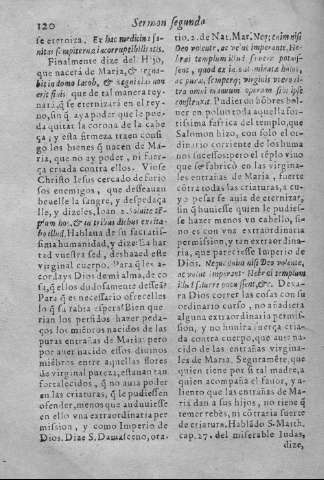 120
Sermon segundo
se eterniza. Ex hac medicina sa-
nitas sempiterna incorruptibilitatis.
Finalmente dize del Hijo,
que nacerá de Maria, & regna-
bit in domo Iacob, & regni eius non
erit finis que de tal manera rey-
nará, q̃ se eternizará en el rey-
no, sin q̃ aya poder que le pue-
da quitar la corona de la cabe
ça, y esta firmeza traen consi-
go los bienes q̃ nacen de Ma-
ria, que no ay poder, ni fuer-
ça criada contra ellos. Viose
Christo Iesus cercado de furio
sos enemigos, que desseauan
beuelle la sangre, y despedaça
lle, y dizeles, Ioan 2. Soluite tē-
plum hoc, & in tribus diebus excita-
bo illud, Hablaua de su sacratis-
sima humanidad, y dize: Ea har
tad vuestra sed, deshazed este
virginal cuerpo. Para q̃ les a-
cordays Dios de mi alma, de co
sa, q̃ ellos
Para q̃ es necessario ofrecelles
lo q̃ su rabia espera? Bien que
rian los perfidos hazer peda-
ços los miēbros nacidos de las
puras entrañas de Maria: pero
por auer nacido essos diuinos
miēbros entre aquellas flores
de virginal pureza, estauan tan
fortalecidos, q̃ no auia poder
en las criaturas, q̃ le pudiessen
ofender, menos que anduuiesse
en ello vna extraordinatia per
mission, y como Imperio de
Dios. Dize S. Damasceno, ora-
tio, 2. de Nat. Mar. Neq; enim nisi
Deo volente, ac velut imperante, He-
brai templum illud soluere potuis-
sent, quod ex
ac pura, semperq; virginis viceri-
tra omni nouum operam sibi ipse
construxit. Pudieron hōbres bol-
uer en poluo toda aquella for-
tissima fabrica del templo, que
Salomon hizo, con solo el or-
dinario corriente de los huma
nos sucessos: pero el tēplo viuo
que se fabricò en las virgina-
les entrañas de Maria, fuerte
cōtra todas las criaturas, a cu-
yo pesar se auia de eternizar,
sin q̃ huuiesse quien le pudies-
se hazer menos vn cabello, si-
no es con vna extraordinaria
permission, y tan extraordina-
ria, que pareciesse Imperio de
Dios. Neque enim nisi Deo volente,
ac velut imperante Hebrai templum
illud soluere potuissent, &c. Dexa-
ra Dios correr las cosas con su
ordinario corso, no añadiera
alguna extraordinaria permis-
sion, y no huuira fuerça cria-
da contra cuerpo, que aue na-
cido de las entrañas virgina-
les de Maria. Seguramēte, que
quien tiene por si tal madre, a
quien acompaña el fauor, y a-
liento que las entrañas de Ma-
ria dan a sus hijos, no tiene q̃
temer rebès, ni cōtraria fuerte
de criatura. Hablādo S. Matth.
cap. 27. del miserable Iudas,
dize,